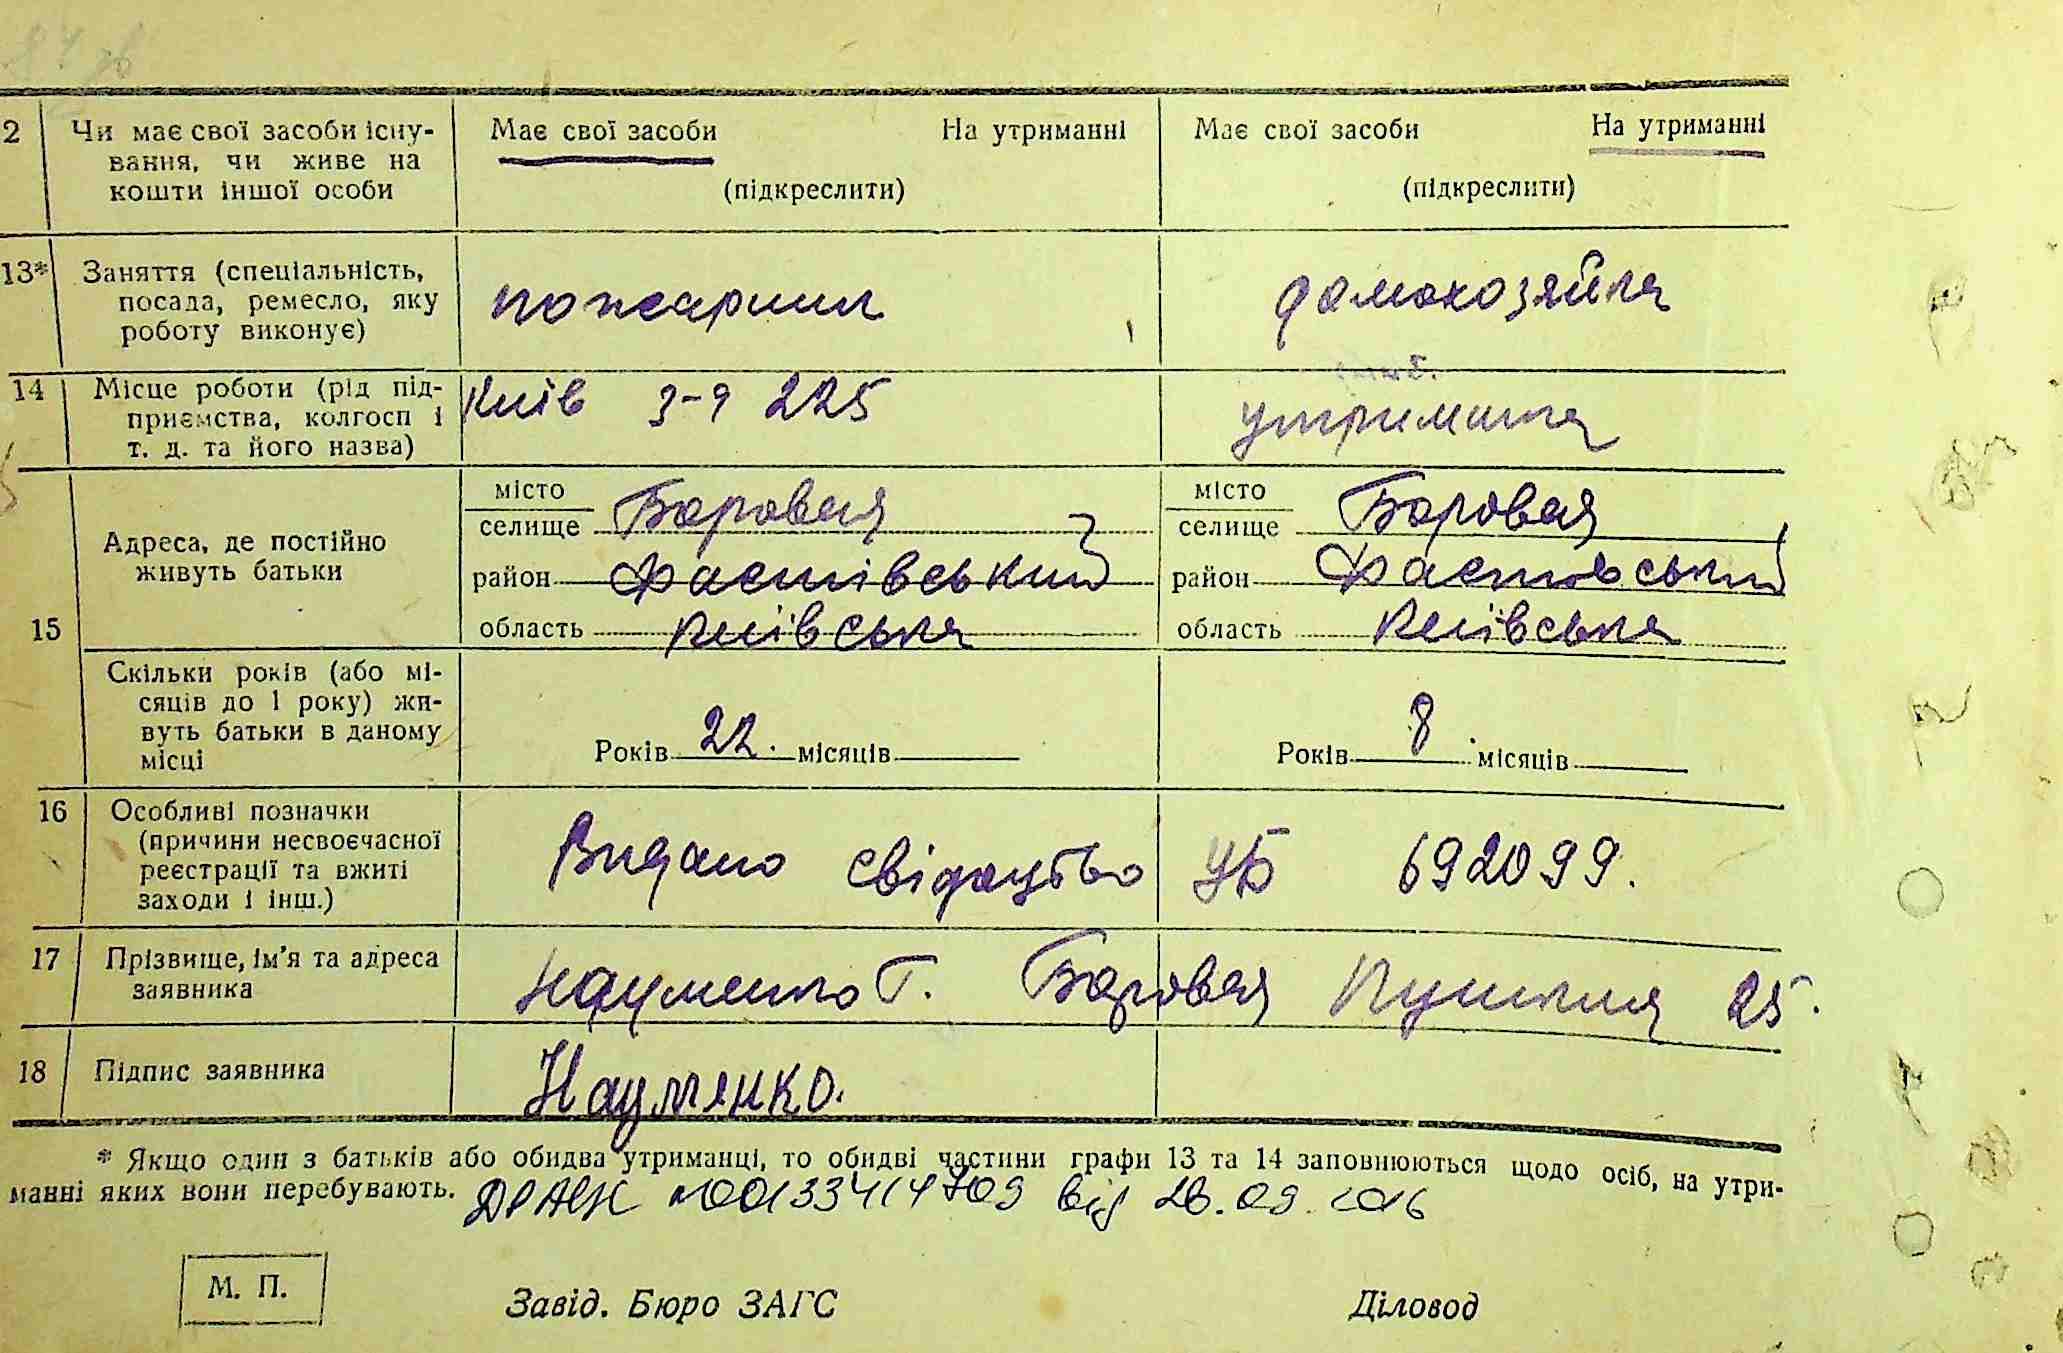 2 Чи має свої засоби існу- Має свої засоби На утриманні Має свої засоби На утриманні
вання, чи живе на
кошти іншої особи (підкреслити) (підкреслити)
13* Заняття (спеціальність,
посада, ремесло, яку пожарник домохозяйка
роботу виконує)
14 Місце роботи (рід під- Київ з-д 225
приємства, колгосп і утриманка
т. д. та його назва)
місто місто
селище Боровая селище Боровая
Адреса, де постійно
живуть батьки район Фастівський район Фастовський
15 область Київська область Київська
Скільки років (або мі-
сяців до 1 року) жи-
вуть батьки в даному
місці Років 22. місяців Років 8 місяців
16 Особливі позначки
(причини несвоєчасної Видано свідоцтво УБ 692099.
реєстрації та вжиті
заходи і інш.)
17 Прізвище, ім'я та адреса Науменко Г. Боровая Пушкіна 25.
заявника
18 Підпис заявника Науменко.
* Якщо один з батьків або обидва утриманці, то обидві частини графи 13 та 14 заповнюються щодо осіб, на утри-
манні яких вони перебувають. №00133414709 від 28.09.2016
М. П. Завід. Бюро ЗАГС Діловод